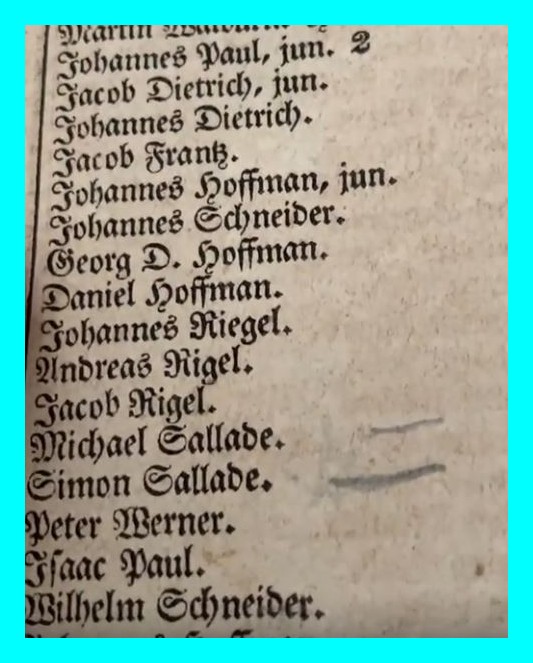 Martin
Johannes Paul, jun. 2
Jacob Dietrich, jun.
Johannes Dietrich.
Jacob Frantz.
Johannes Hoffman, jun.
Johannes Schneider.
Georg D. Hoffman.
Daniel Hoffman.
Johannes Riegel.
Andreas Rigel.
Jacob Rigel.
Michael Sallade.
Simon Sallade.
Peter Werner.
Isaac Paul.
Wilhelm Schneider.